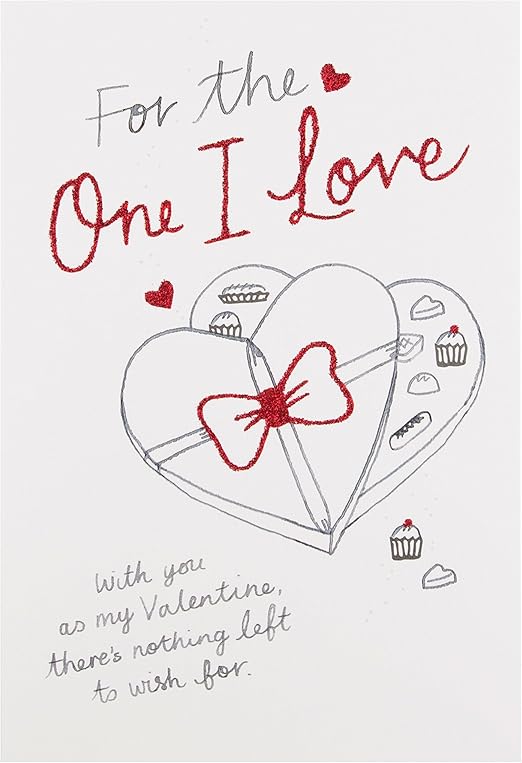 For the
One I Love
With you
as my Valentine,
there's nothing left
to wish for.